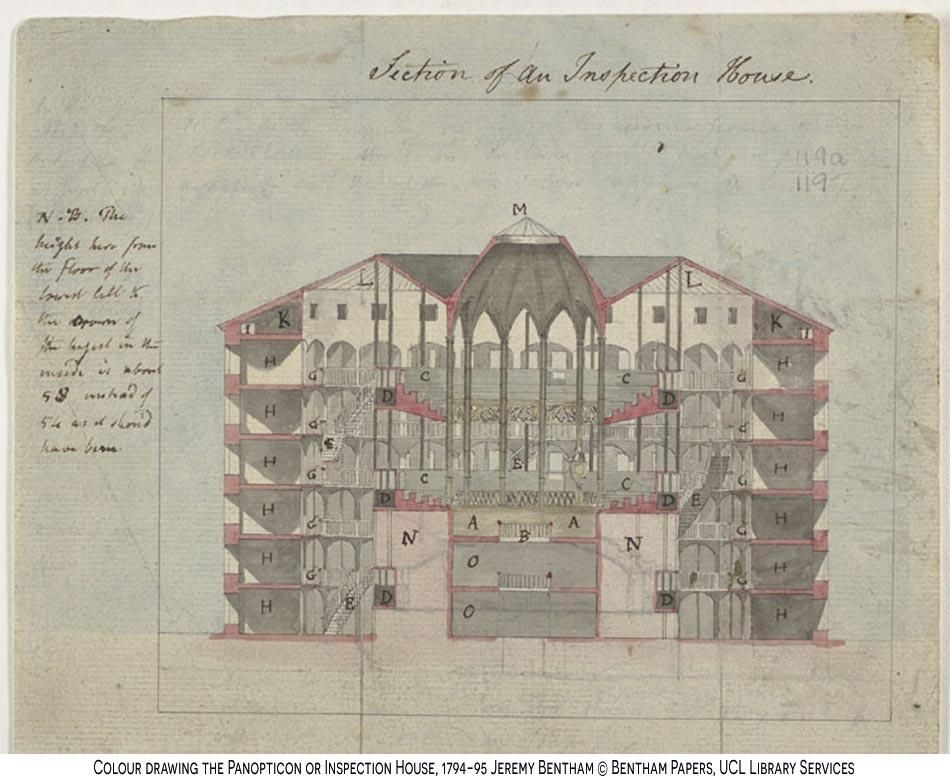 Section of an Inspection House.
119a
119
N.B. The
height here from
the floor of the
lowest Cell to
the crown of
the highest in the
inside is about
58 instead of
54 as it should
have been
M
L L
I K K I
H G C C G H
D D
H G G H
E
H G E G H
C C
H G D D E G H
A A
B
H G N O N G H
H E D O D H
COLOUR DRAWING THE PANOPTICON OR INSPECTION HOUSE, 1794-95 JEREMY BENTHAM © BENTHAM PAPERS, UCL LIBRARY SERVICES